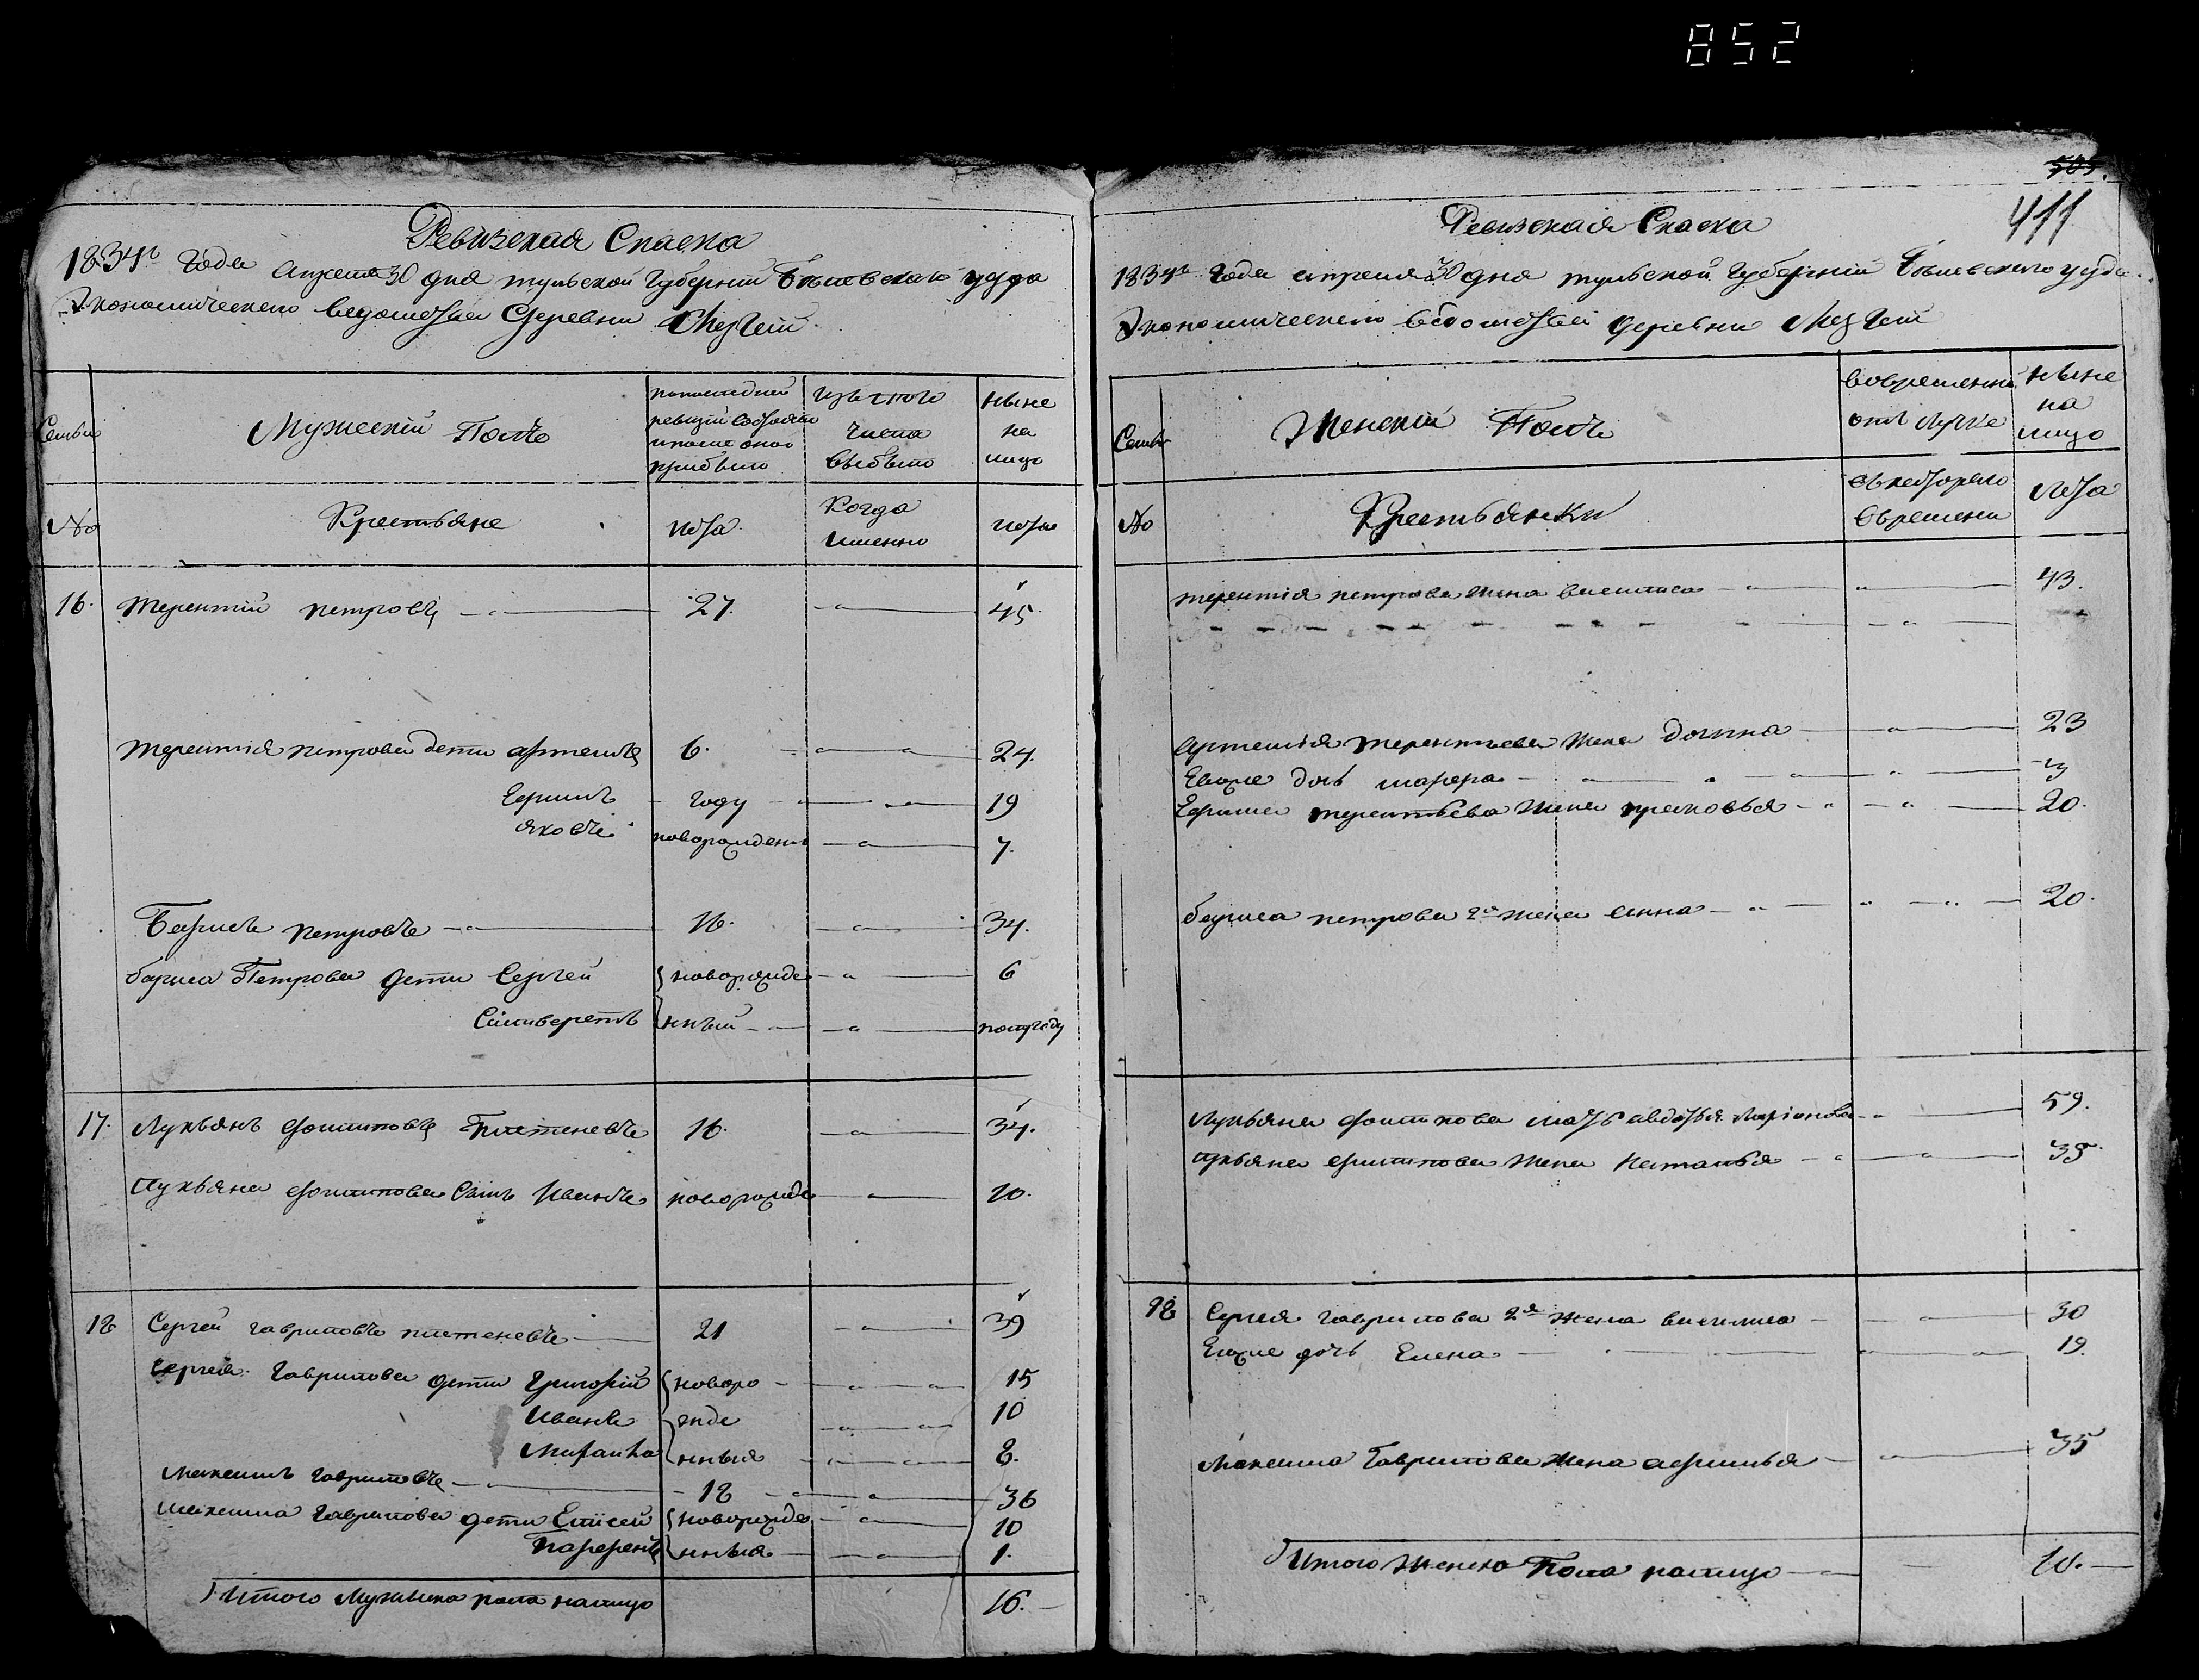 852
505.
411
Ревизская Сказка
1834го года апреля 30 дня тульской Губернии Белевскаго уезда
Экономическаго ведомства Деревни
Семьи
Мужеский Полъ
попоследней
ревизии состояло
ипосле оной
прибыло
Изътого
числа
выбыло
Ныне
на
лицо
No
Крестьяне
лета.
Когда
именно
лета
16. терентий петровъ 27. 45.
терентия петрова дети артемъ 6. 24.
году 19
яковъ новорожденъ 7.
Барисъ петровъ 16. 34.
бариса Петрова дети Сергей новорожде 6
нный полугоду
17. Лукьянъ Плетеневъ 16. 34.
Лукьяна Сынъ Иванъ новорожде 10.
18 Сергей гавриловъ плетеневъ 21 39
Сергея гаврилова дети Григорий новоро 15
Иванъ жде 10
нныя 8.
Максимъ гавриловъ 18 36
максима гаврилова дети Елисей новорожде 10
нныя 1.
Итого Мужеска пола налицо 16.
Ревизская Сказка
1834го года апреля 30 дня тульской Губернии Белевскаго уезда
Экономическаго ведомства деревни
Семьи
Женский Полъ
вовременной
отлучке
Ныне
на
лицо
No
Крестьянки
съкоторого
времени
лета
терентия петрова жена василиса 43.
артемия терентьева жена домна 23
Евоже дочь 3
терентьева жена прасковья 20.
бариса петрова 2я жена анна 20.
Лукьяна мать авдотья 59.
лукьяна жена Наталья 35.
18 Сергея гаврилова 2я жена василиса 30
Евоже дочь Елена 19.
Максима Гаврилова жена 35
Итого Женска Пола налицо 10.